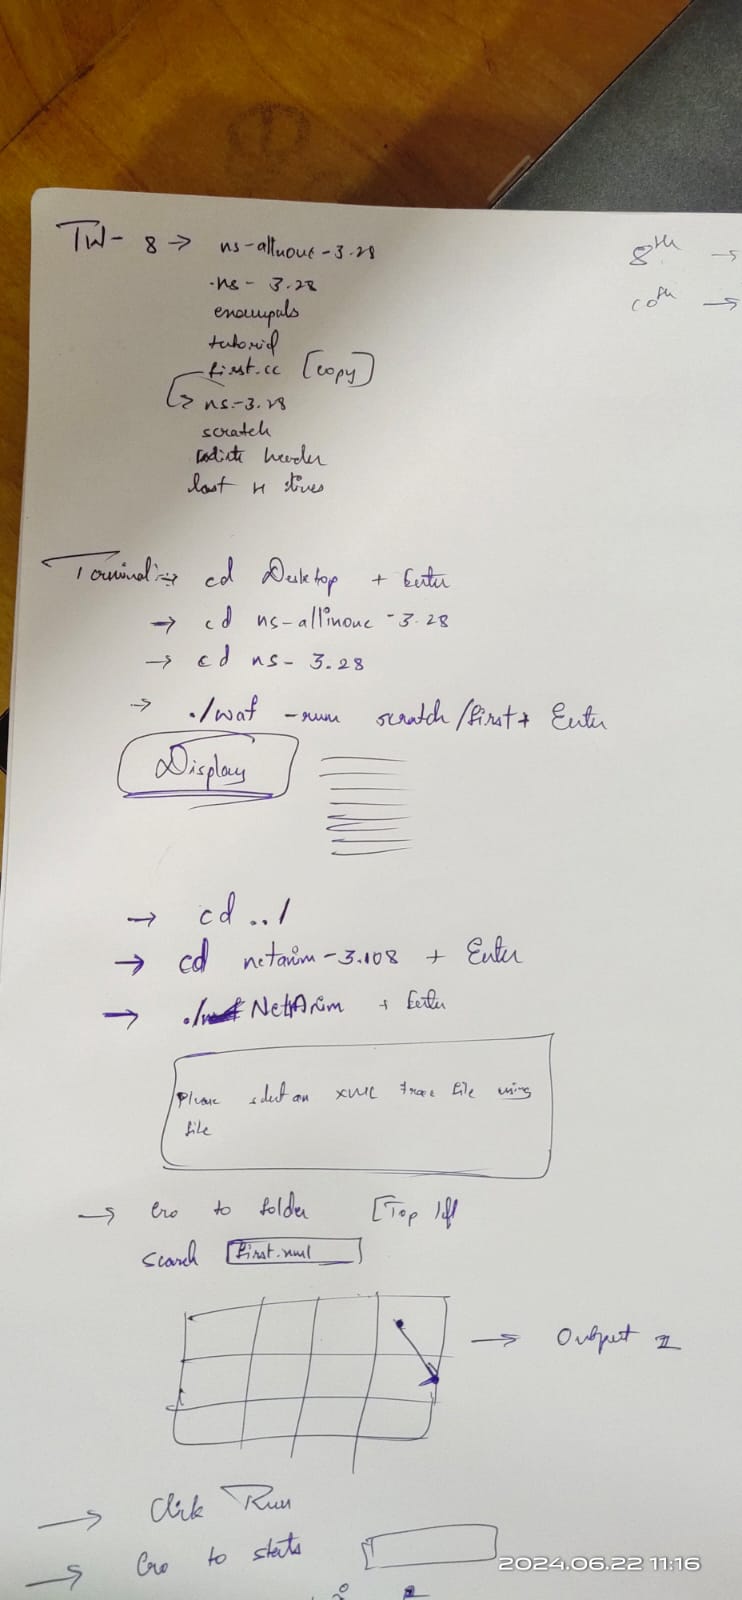 TW- 8 → ns-allinone-3.28
ns- 3.28
tutorial
first.cc [copy]
ns-3.28
scratch
header
last 4 lines
8th →
10th →
Terminal:→ cd Desktop + Enter
→ cd ns-allinone -3.28
→ cd ns- 3.28
→ ./waf -run scratch/first + Enter
Display
→ cd ../
→ cd netanim-3.108 + Enter
→ ./NetAnim + Enter
Please select an XML trace file using
file
→ Go to folder [Top left
search first.xml
→ Output 2
→ Click Run
→ Go to stats
2024.06.22 11:16